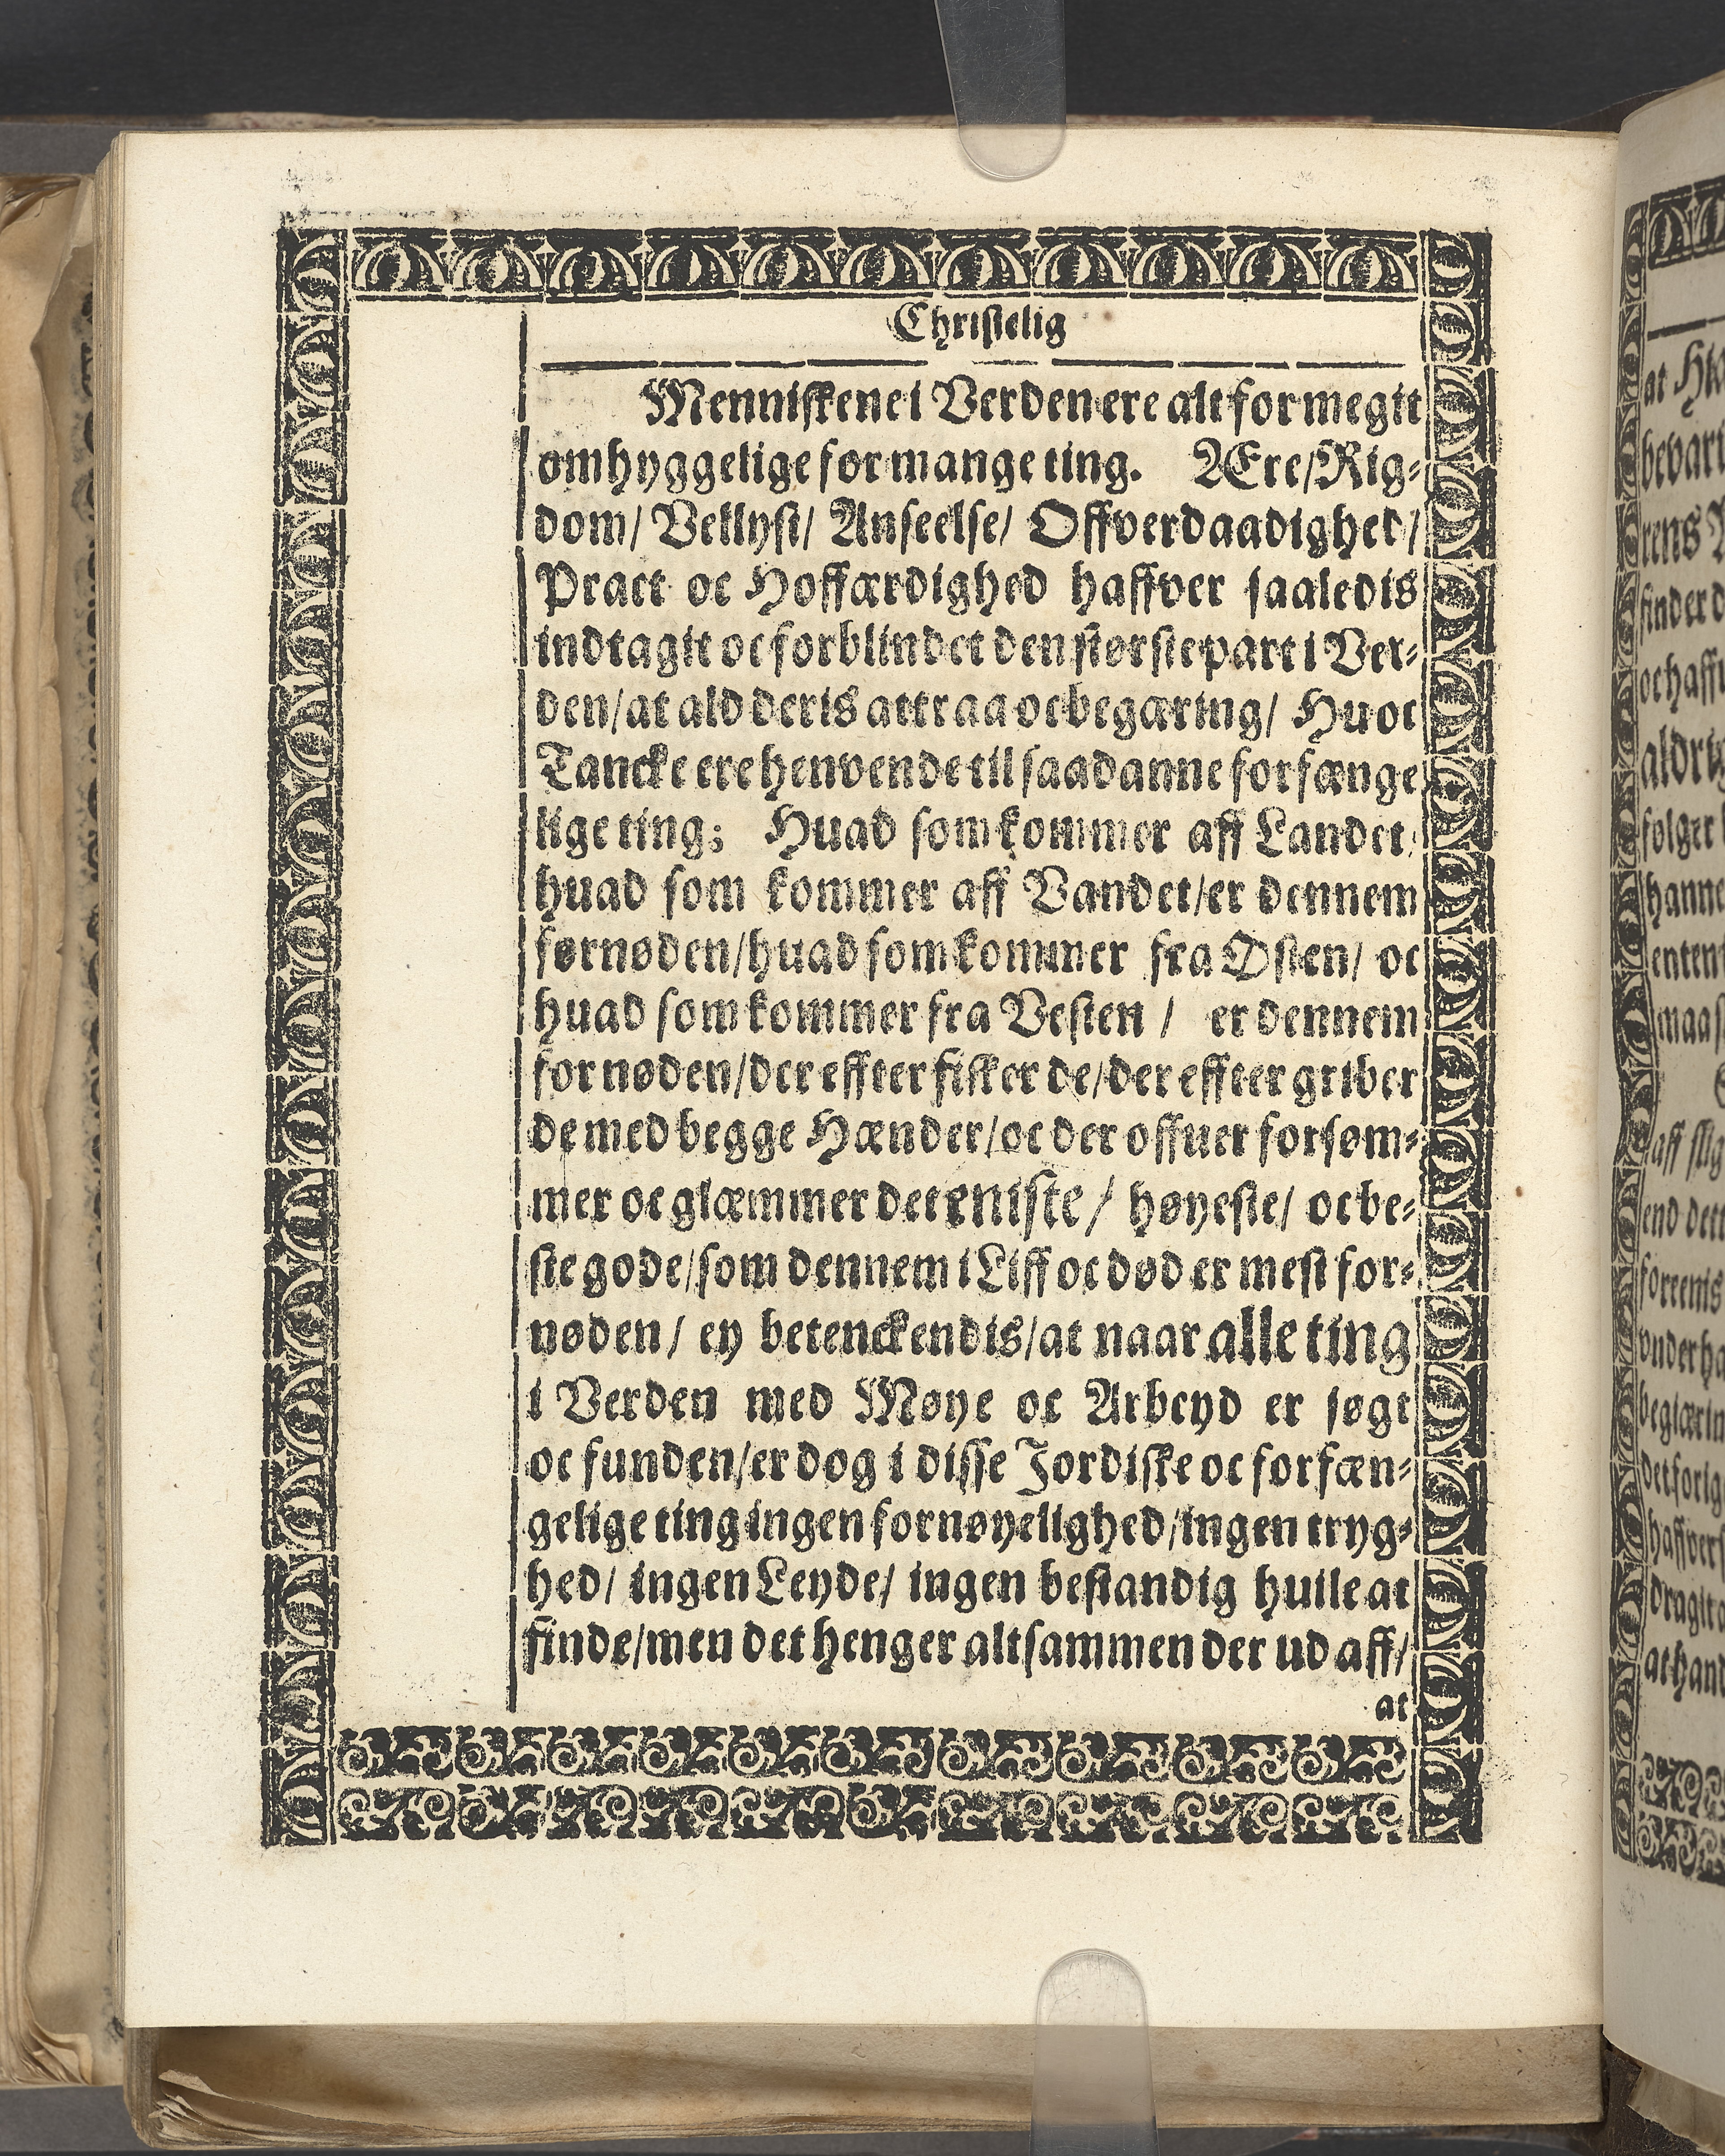 Christelig
Menniskene i Verden ere alt for megit
omhyggelige for mange ting. Ære/Rig-
dom/ Vellyst/ Anseelse/ Offverdaadighed/
Pract oc Hoffærdighed haffver saaledis
indtagit oc forblindet den største part i Ver-
den/at ald deris attraa oc begæring/ Hu oc
Tancke ere henvende til saadanne forfænge
lige ting; Huad som kommer aff Landet/
huad som kommer aff Vandet/er dennem
fornøden/huad som kommer fra Østen/ oc
huad som kommer fra Vesten / er dennem
fornøden/der effter fisker de/der effter griber
de med begge Hænder/oc der offuer forsøm-
mer oc glæmmer det eniste/ høyeste/ oc be-
ste gode/som dennem i Liff oc død er mest for-
nøden/ ey betenckendis/at naar alle ting
i Verden med Møye oc Arbeyd er søgt
oc funden/er dog i disse Jordiske oc forfæn-
gelige ting ingen fornøyelighed/ingen tryg-
hed/ ingen Leyde/ ingen bestandig huile at
finde/men det henger altsammen der ud aff/
at